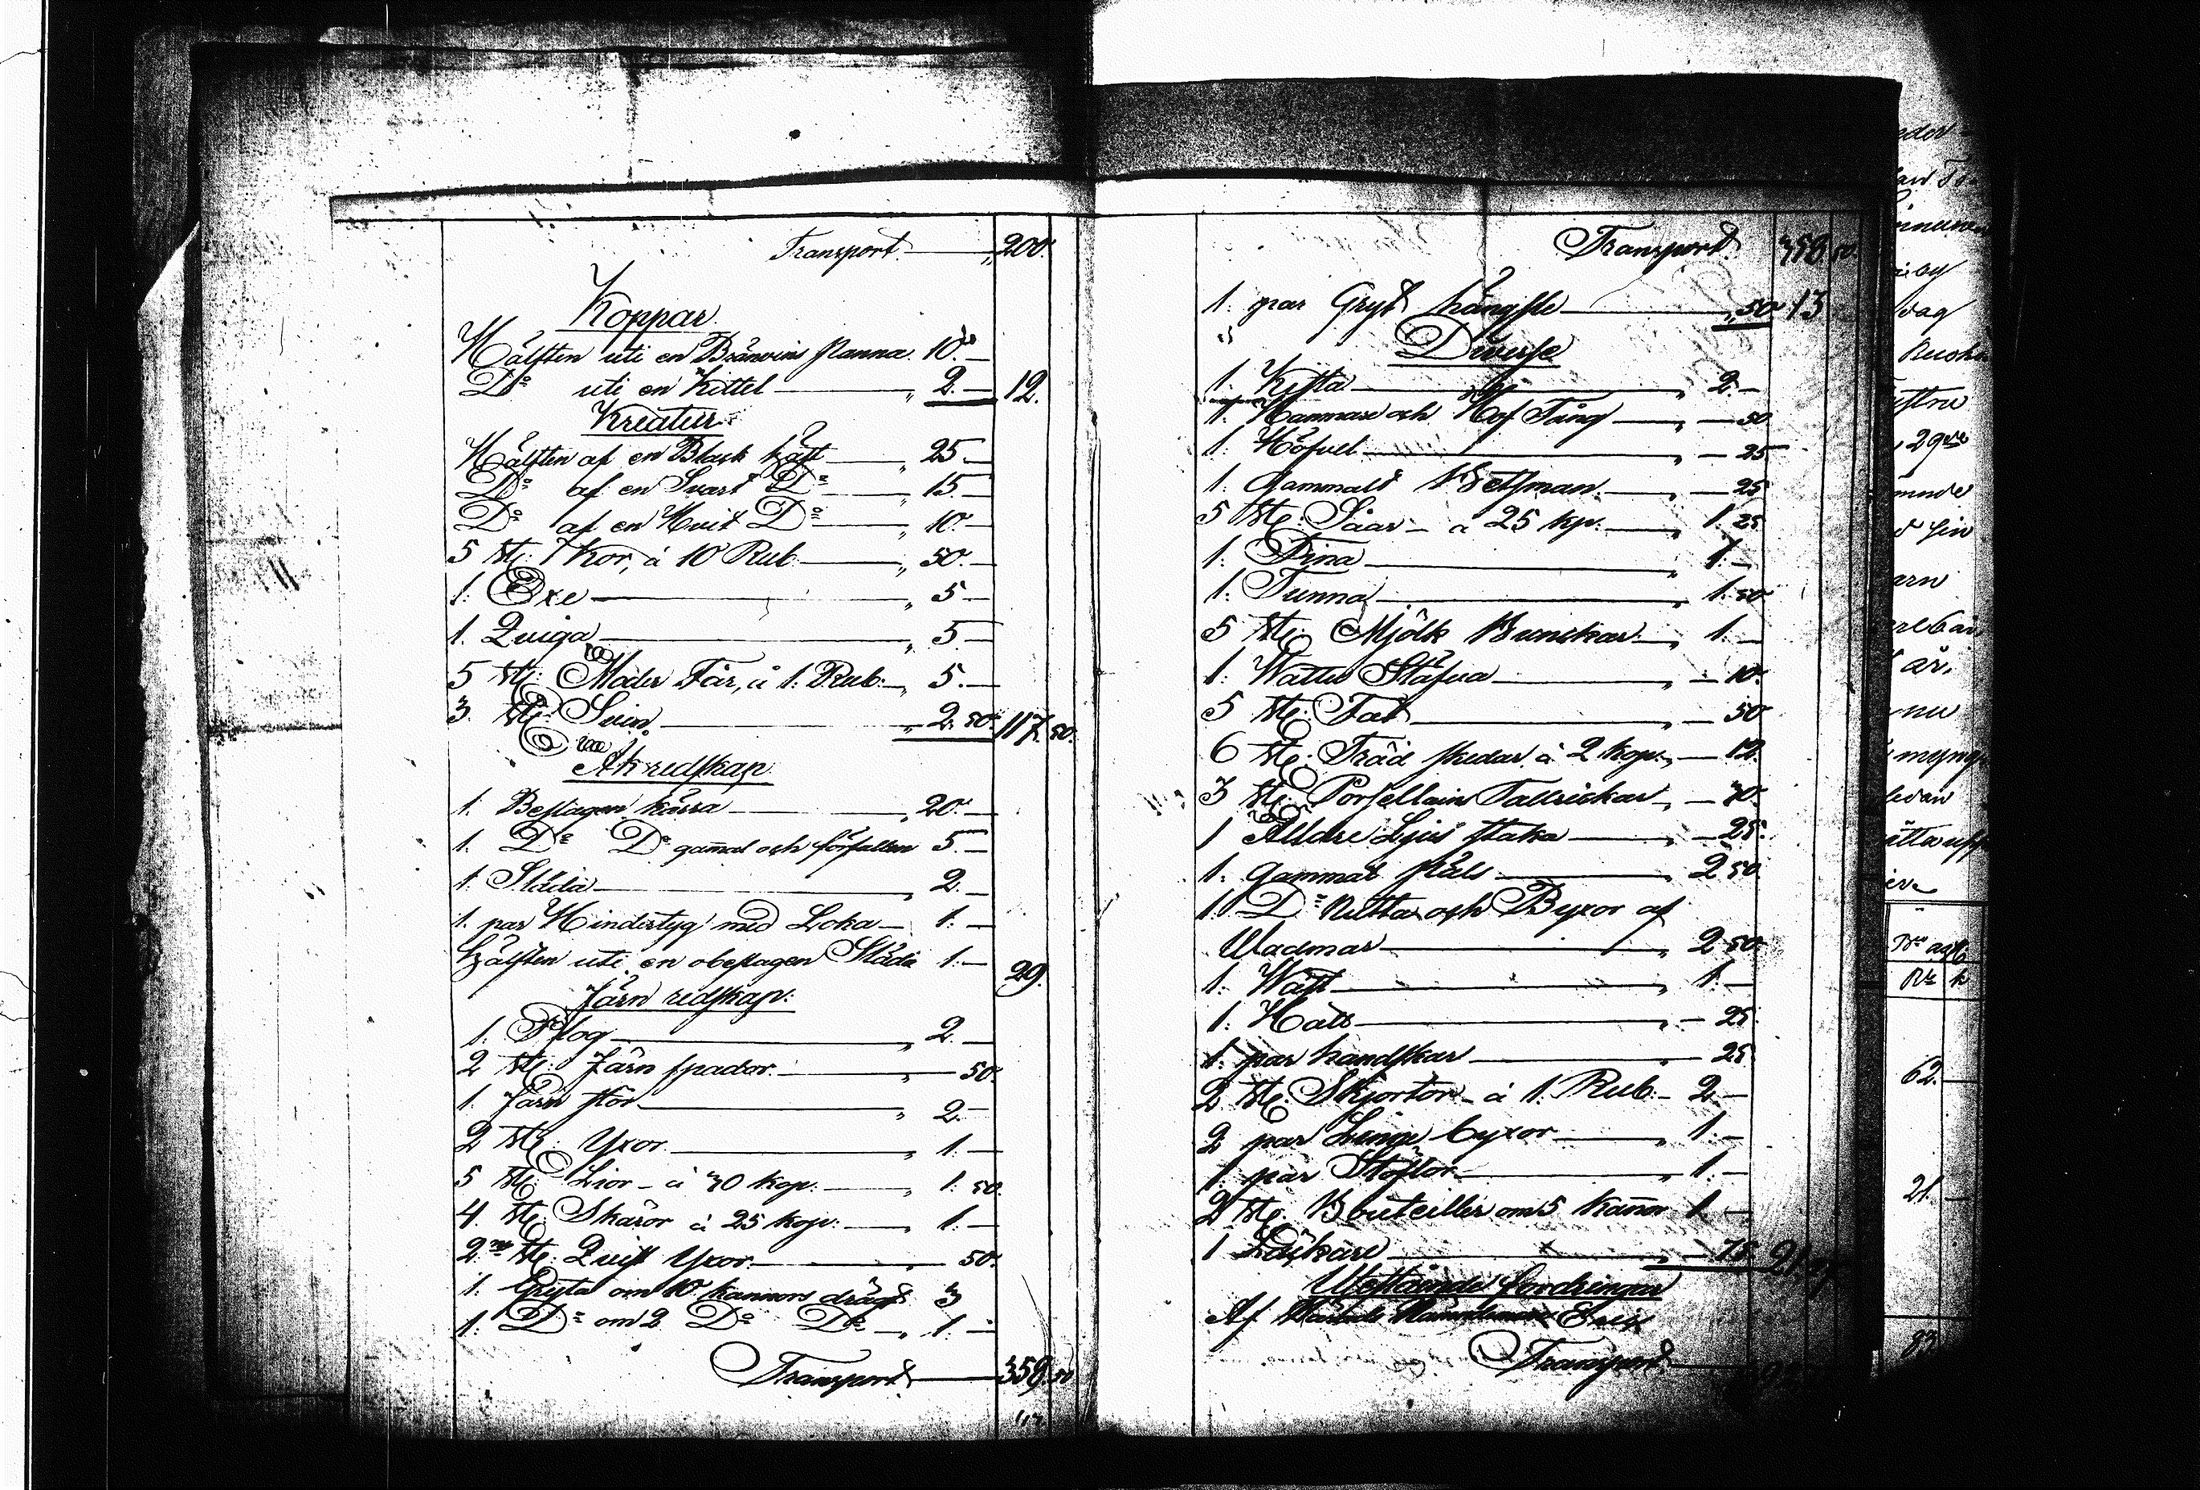 Transport — „ 200.
Koppar
Hälften uti en Bränvins Panna. 10. —
Do uti en Kittel — „ 2. — 12.
Kreatur
Hälften af en Black häst — „ 25 —
Do af en Svart Do — „ 15 —
Do af en Hvit Do — „ 10 —
5 st: Kor, à 10 Rub. — „ 50. —
1. Oxe — „ 5 —
1. Quiga — „ 5 —
5 st: Moder Får, à 1. Rub: — „ 5. —
3. st: Svin — „ 2. 50. 117. 50.
Åkredskap
1. Beslagen kärra — „ 20. —
1. Do Do gamal och förfallen 5. —
1. Släda — „ 2. —
1. par Hindertyg med Loka — 1. —
Hälften uti en obeslagen Släda 1. — 29.
Järn redskap:
1. Plog — „ 2. —
2 st: Järn spador. — „ — 50.
1. Järn stör — „ 2. —
2 st: Yxor. — „ 1. —
5 st: Lior — à 30 kop: — „ 1. 50.
4. st: Skäror à 25 kop: — „ 1. —
2 st: Quist Yxor. — „ 50.
1. Gryta om 10 kannors drägt 3
1. Do om 2 Do Do — „ 1. —
Transport — 358. 50
Transport. 358 50.
1. par Gryt hängsle — „ 50. 13
Diverse
1. Kista — „ 2. —
1. Hammare och Hof Tång — „ — 50
1. Höfvel — „ — 25
1. Gammalt Betsman. — „ — 25
5 st: Såar — à 25 kp: — „ 1. 25
1. Tina — „ 1. —
1. Tunna — „ 1. 50
5 st: Mjölk Bunckar. — „ 1. —
1. Wattu Stäfva — „ — 10.
5 st: Fat — „ — 50
6 st: Träd skedar à 2 kop: „ — 12.
3 st: Porsellains Tallrickar „ — 30.
1 Äldre Ljus staka — „ — 25.
1. Gammal päls — „ 2 50
1. Do och Byxor af
Wadmar — 2 50.
1. Wäst — „ 1. —
1. Hatt — „ — 25.
1. par handskar — „ 25
2 st: Skjortor — à 1. Rub. — 2 —
2 par Linge byxor — „ 1. —
1. par Stöflor — „ 1. —
2 st: Bouteiller om 5 kannor 1. —
1 — „ — 75 21.
Utestående fordringar
Af
Transport